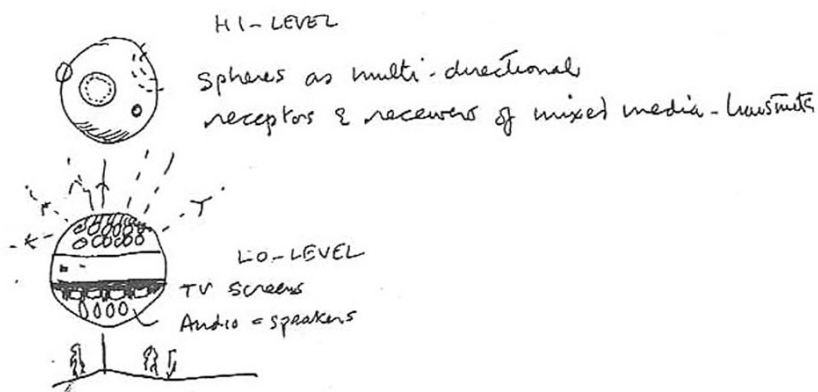 HI-LEVEL
Spheres as multi-directional
receptors & receivers of mixed media -
LO-LEVEL
TV Screens
Audio = speakers